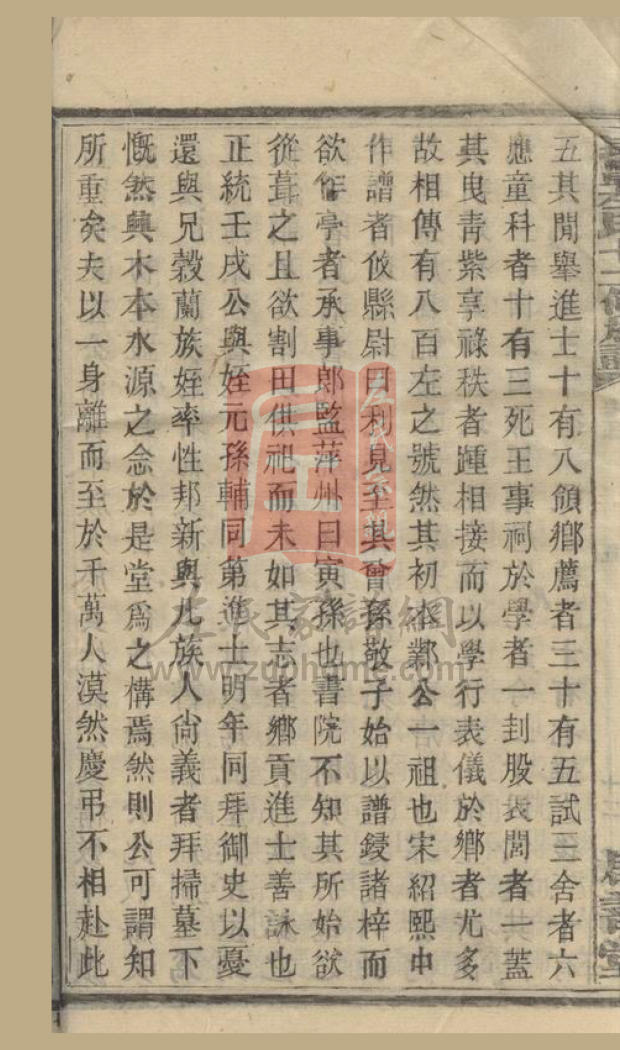 五其閒舉進士十有八領鄉薦者三十有五試三舍者六
應童科者十有三死王事祠於學者一刲股表閭者一蓋
其曳青紫享祿秩者踵相接而以學行表儀於鄉者尤多
故相傳有八百左之號然其初本鄴公一祖也宋紹熙中
作譜者攸縣尉曰利見至其曾孫敬子始以譜鋟諸梓而
欲作亭者承事郎監萍州曰寅孫也書院不知其所始欲
從葺之且欲割田供祀而未如其志者鄉貢進士善詠也
正統壬戌公與姪元孫輔同第進士明年同拜御史以憂
還與兄穀蘭族姪率性邦新與凡族人尙義者拜掃墓下
慨然興木本水源之念於是堂爲之構焉然則公可謂知
所重矣夫以一身離而至於千萬人漠然慶弔不相赴此
左氏家譜網
www.zdphome.com